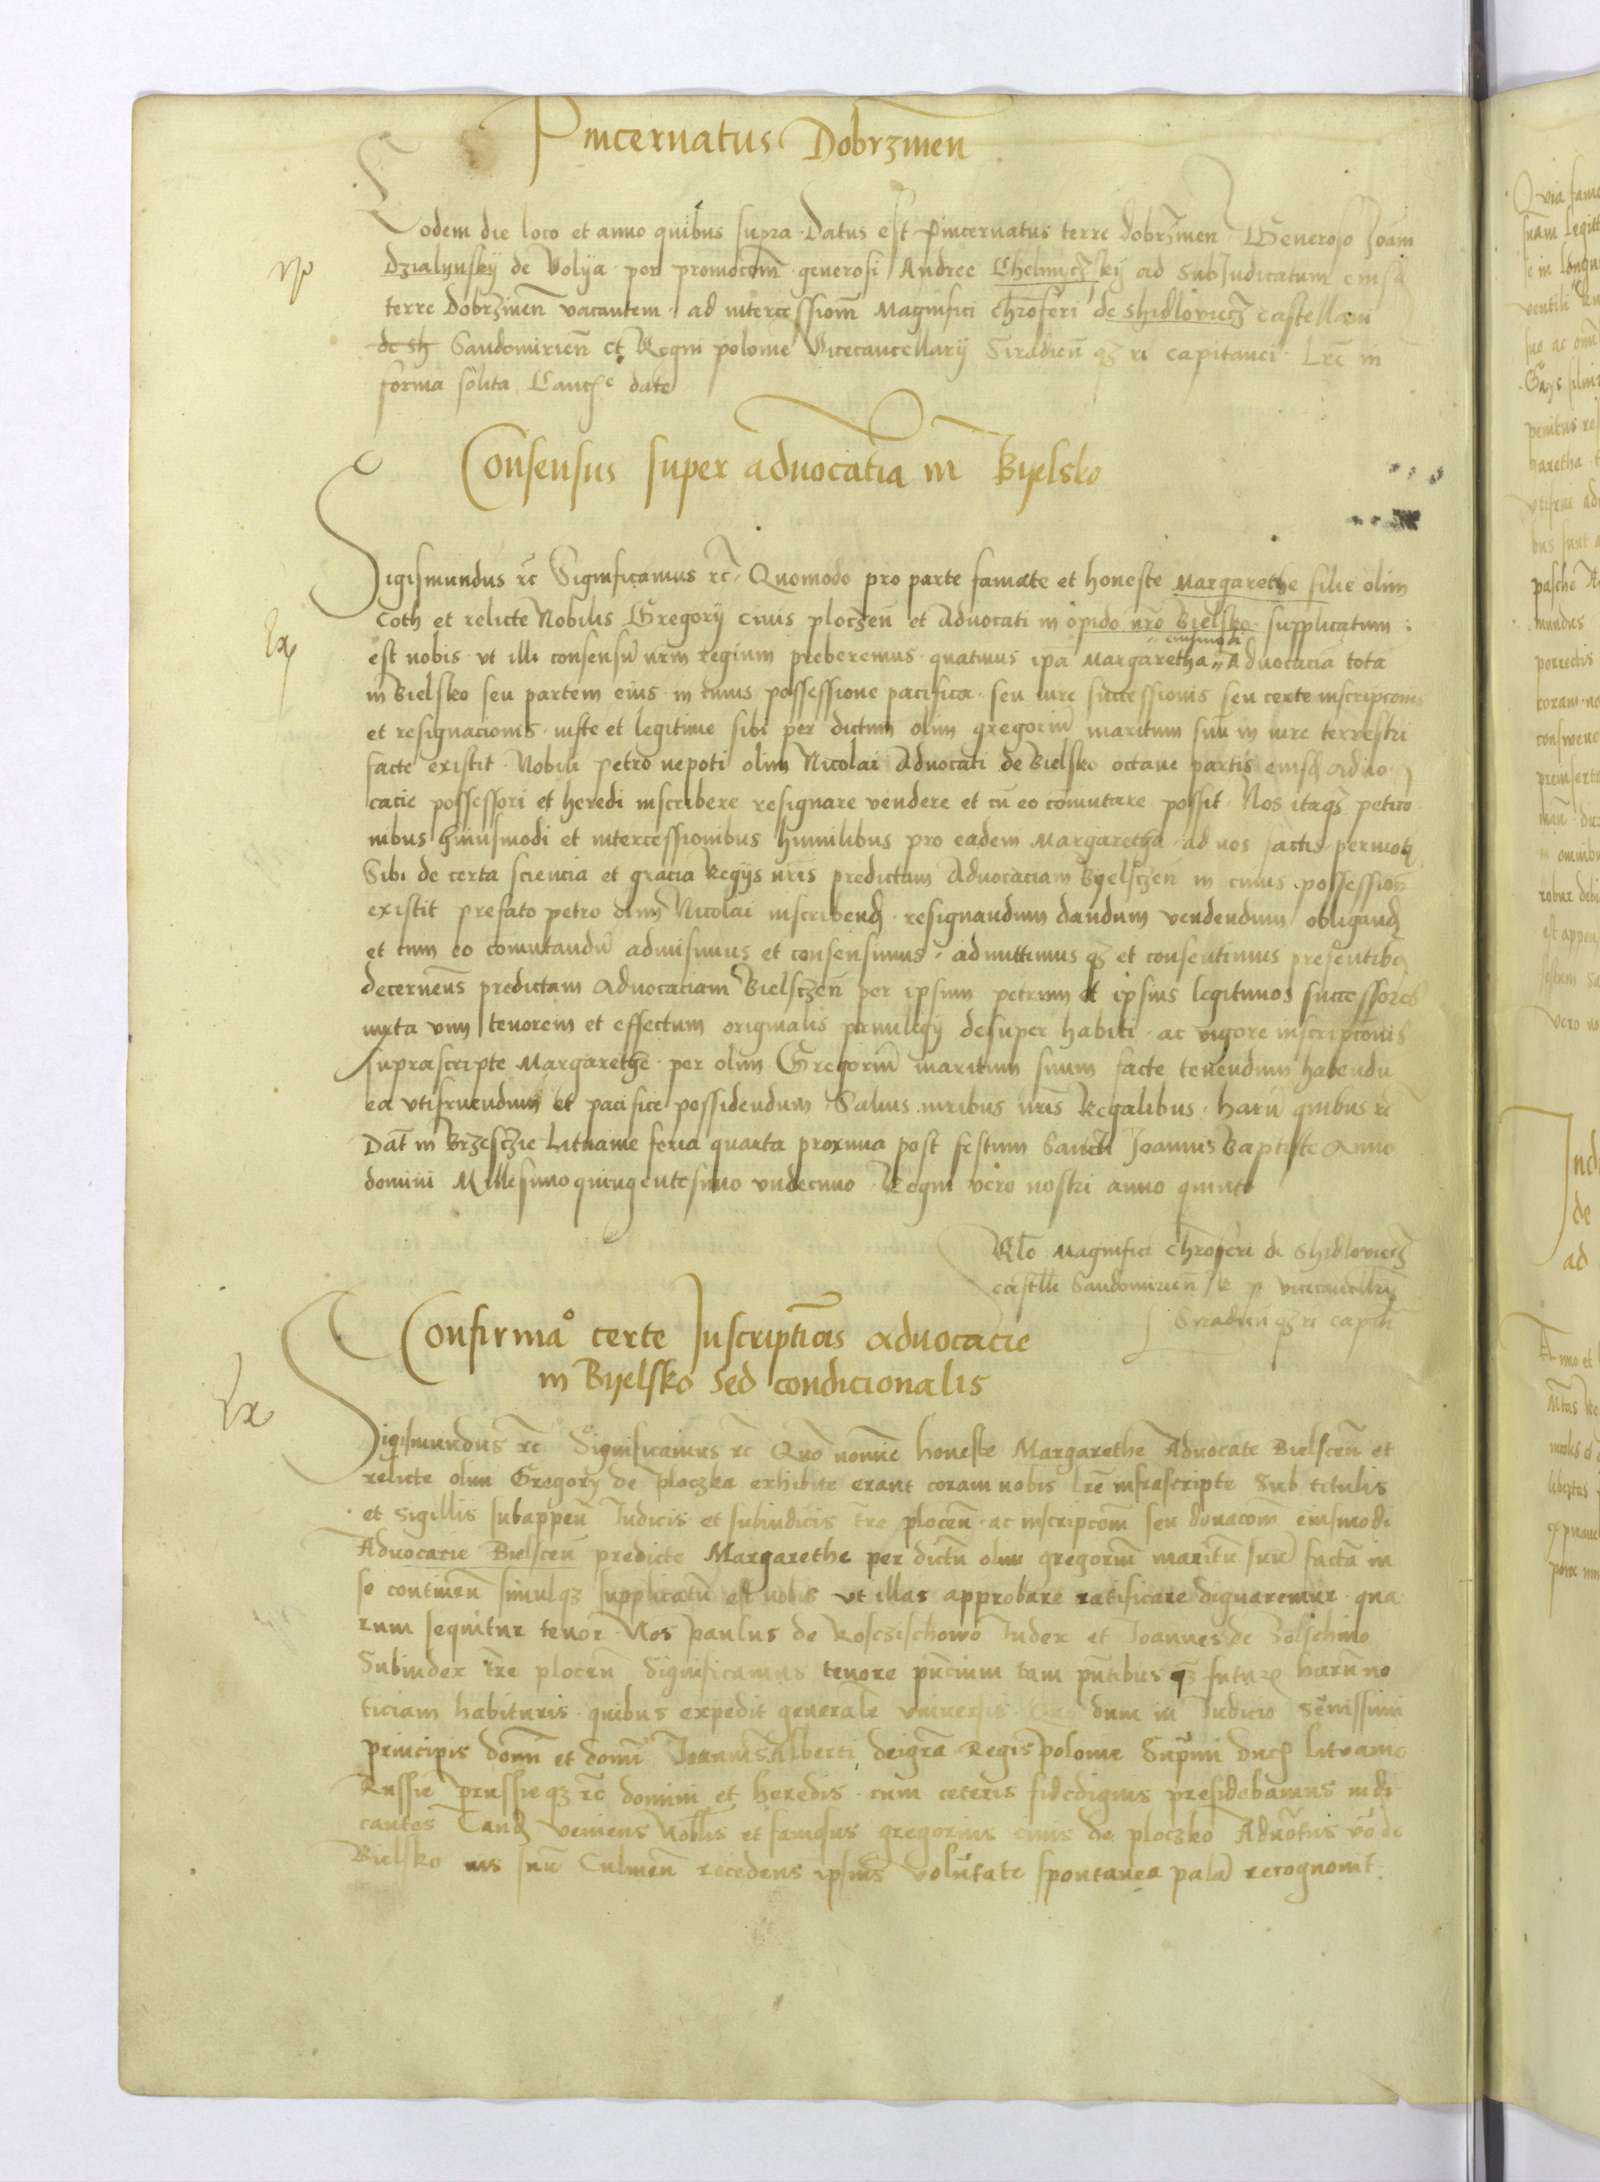 Pincernatus Dobrzinen
Eodem die loco et anno quibus supra Datus est Pincernatus terre dobrzinen Generoso Joani
Dzialynskij de Volija per promocom generosi Andree Chelmyczskij ad Subiudicatum eiusdem
terre dobrzinen vacantem ad intercessiom Magnifici chroferi de shidlovietz castellani
de sh Sandomirien et Regni polonie Vicecancellarij Siradien qz rc capitanei Lre in
forma solita date
Consensus super advocatia in Byelsko
Sigismundus rc Significamus rc Quomodo pro parte famate et honeste Margarethe filie olim
Coth et relicte Nobilis Gregorij civis ploczen et Advocati in opido nro Bielsko supplicatum
eiusmodi
est nobis vt illi consensu nrm regium preberemus quatinus ipa Margaretha Advocacia tota
in Bielsko seu partem eius in cuius possessione pacifica seu iure successionis seu certe inscripcionis
et resignacionis iuste et legitime sibi per dictum olim gregoriu maritum suu in iure terrestri
facte existit Nobili petro nepoti olim Nicolai Advocati de Bielsko octave partis eiusd advo
cacie possessori et heredi inscribere resignare vendere et cu eo comutare possit Nos itaqz peticio
nibus huiusmodi et intercessionibus humilibus pro eadem Margaretha ad nos factis permoti
Sibi de certa sciencia et gracia Regijs nris predictam Advocaciam Byelsczen in cuius possession
existit prefato petro olim Nicolai inscribend resignandum dandum vendendum obligand
et cum eo comutandu admisimus et consensimus admittimus qz et consentimus presentibus
decernens predictam Advocaciam Bielsczen per ipsum petrum et ipsius legitimos successores
iuxta vim tenorem et effectum originalis privilegij desuper habiti ac vigore inscripcionis
suprascripte Margarethe per olim Gregoriu maritum suum facte tenendum habendu
ea vtifruendum et pacifice possidendum Salvis iuribus nris Regalibus haru quibus rc
Dat in Brzesczie Lituanie feria quarta proxima post festum Sancti Joannis Baptiste Anno
domini Millesimo quingentesimo vndecimo Regni vero nostri anno quinto
Rlo Magnifici chroferi de Shidlovietz
castelli Sandomirien R p vicecancellrij
Siradien qz rc capitei
Confirmao certe Inscriptiois advocacie
in Byelsko sed condicionalis
Sigismundus rc Significamus rc Quo nomine honeste Margarethe Advocate Bielscen et
relicte olim Gregorij de ploczka exhibite erant coram nobis Lre infrascripte Sub titulis
et sigillis subappen Iudicis et subiudicis tre plocen ac inscripcom seu donacom eiusmodi
Advocacie Bielscen predicte Margarethe per dictu olim gregorium maritu suu facta in
se continen simulqz supplicatu est nobis vt illas approbare ratificare dignaremur qua
rum sequitur tenor Nos paulus de Kosczischowo Iudex et Joannes de
Subiudex tre plocen Significamus tenore pncium tam pntibus qz futuris haru no
ticiam habituris quibus expedit generale vniversis dum in Iudicio Serenissimi
principis domi et domi Joannis Alberti deigra Regis polonie Supmi ducis Lituanie
Russie prussieqz rc domini et heredis cum ceteris fidedignis presidebamus iudi
cantes veniens Nobilis et famosus gregorius civis de ploczko
Bielsko ius suu Culmen recedens ipsius volutate spontanea pala recognovit